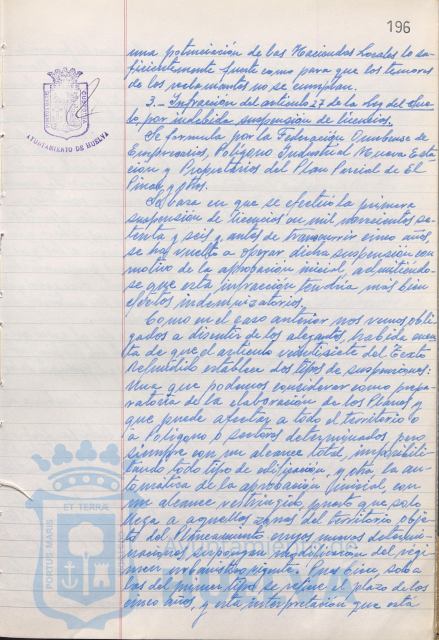 196
una potenciación de las Haciendas Locales lo su-
ficientemente fuerte como para que los temores
de los reclamantos no se cumplan.
3.- Infracción del artículo 27 de la Ley del Sue-
lo por indebida suspensión de licencias.
Se formula por la Federación Onubense de
Empresarios, Polígono Industrial Nueva Esta-
ción y Propietarios del Plan Parcial de El
Pinar, y otros.
Se basa en que se efectuó la primera
suspensión de licencias en mil novecientos se-
tenta y seis y antes de transcurrir cinco años,
se ha vuelto a operar dicha suspensión con
motivo de la aprobación inicial, admitiendo-
se que esta infracción tendría más bien
efectos indemnizatorios.
Como en el caso anterior nos vemos obli-
gados a disentir de los alegantes, habida cuen-
ta de que el artículo veintisiete del Texto
Refundido establece dos tipos de suspensiones:
Una que podemos considerar como prepa-
ratoria de la elaboración de los Planes y
que puede afectar a todo el territorio o
a Polígonos o sectores determinados, pero
siempre con un alcance total, imposibili-
tando todo tipo de edificación, y otra la au-
tomática de la aprobación inicial, con
un alcance restringido, puesto que solo
llega a aquellas zonas del territorio obje-
to del Planeamiento cuyas nuevas determi-
naciones supongan modificación del régi-
men urbanístico vigente. Pues bien, solo a
las del primer tipo se refiere el plazo de los
cinco años, y esta interpretación que está
AYUNTAMIENTO DE HUELVA
PORTUS MARIS
ET TERRA